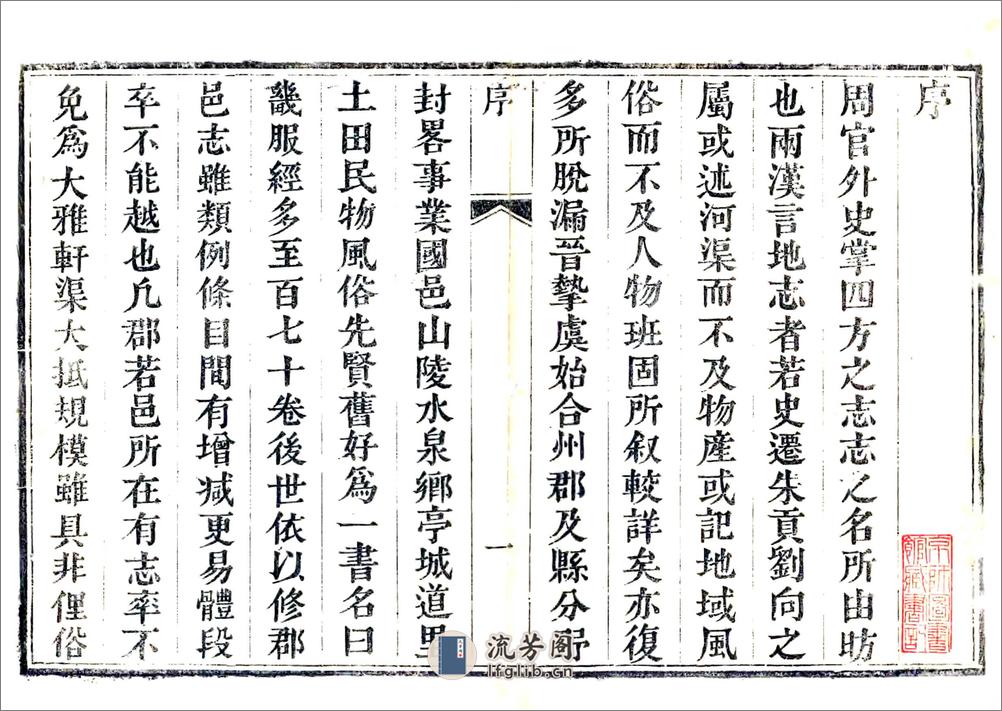 序
周官外史掌四方之志志之名所由昉
也兩漢言地志者若史遷朱貢劉向之
屬或述河渠而不及物產或記地域風
俗而不及人物班固所叙較詳矣亦復
多所脫漏晉摯虞始合州郡及縣分野
序
一
封畧事業國邑山陵水泉鄉亭城道里
土田民物風俗先賢舊好爲一書名曰
畿服經多至百七十卷後世依以修郡
邑志雖類例條目間有增減更易體段
卒不能越也凢郡若邑所在有志率不
免爲大雅軒渠大抵規模雖具非俚俗
流芳阁
lfglib.cn